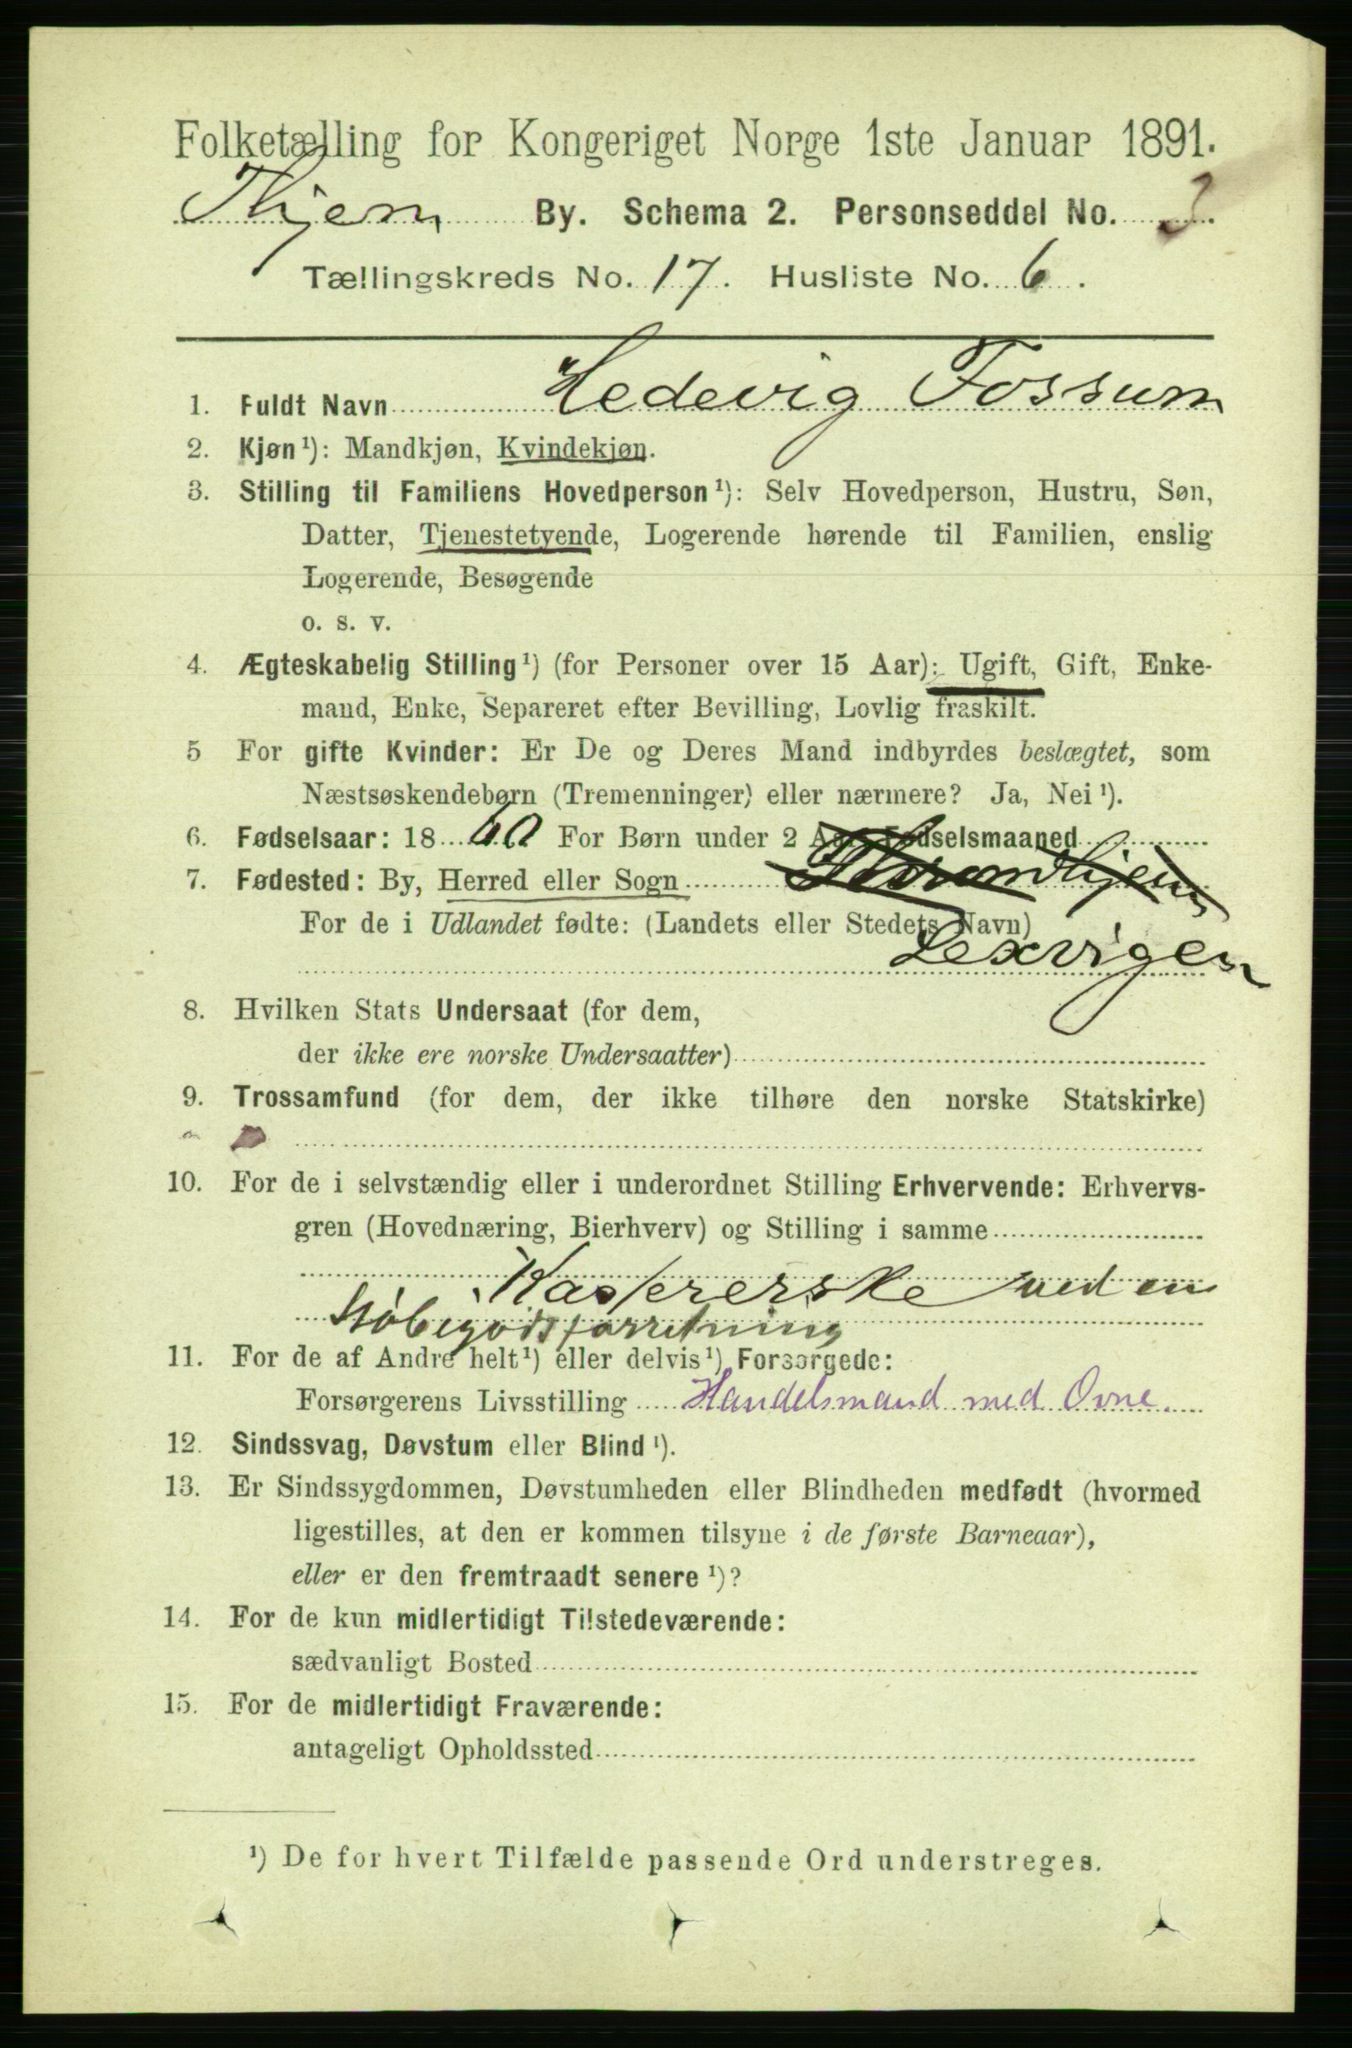 Folketælling for Kongeriget Norge 1ste Januar 1891.
Thjem By. Schema 2. Personseddel No. 3.
Tællingskreds No. 17. Husliste No. 6.
1. Fuldt Navn Hedevig Fossum
2. Kjøn ¹): Mandkjøn, Kvindekjøn.
3. Stilling til Familiens Hovedperson ¹): Selv Hovedperson, Hustru, Søn,
Datter, Tjenestetyende, Logerende hørende til Familien, enslig
Logerende, Besøgende
o. s. v.
4. Ægteskabelig Stilling ¹) (for Personer over 15 Aar): Ugift, Gift, Enke-
mand, Enke, Separeret efter Bevilling, Lovlig fraskilt.
5 For gifte Kvinder: Er De og Deres Mand indbyrdes beslægtet, som
Næstsøskendebørn (Tremenninger) eller nærmere? Ja, Nei ¹).
6. Fødselsaar: 18 60 For Børn under 2 Aar: Fødselsmaaned
7. Fødested: By, Herred eller Sogn Throndhjem
For de i Udlandet fødte: (Landets eller Stedets Navn)
Lexvigen
8. Hvilken Stats Undersaat (for dem,
der ikke ere norske Undersaatter)
9. Trossamfund (for dem, der ikke tilhøre den norske Statskirke)
10. For de i selvstændig eller i underordnet Stilling Erhvervende: Erhvervs-
gren (Hovednæring, Bierhverv) og Stilling i samme
Kasererske ved en
Støbegodsforretning
11. For de af Andre helt ¹) eller delvis ¹) Forsørgede:
Forsørgerens Livsstilling Handelsmand med Ovne.
12. Sindssvag, Døvstum eller Blind ¹).
13. Er Sindssygdommen, Døvstumheden eller Blindheden medfødt (hvormed
ligestilles, at den er kommen tilsyne i de første Barneaar),
eller er den fremtraadt senere ¹)?
14. For de kun midlertidigt Tilstedeværende:
sædvanligt Bosted
15. For de midlertidigt Fraværende:
antageligt Opholdssted
¹) De for hvert Tilfælde passende Ord understreges.